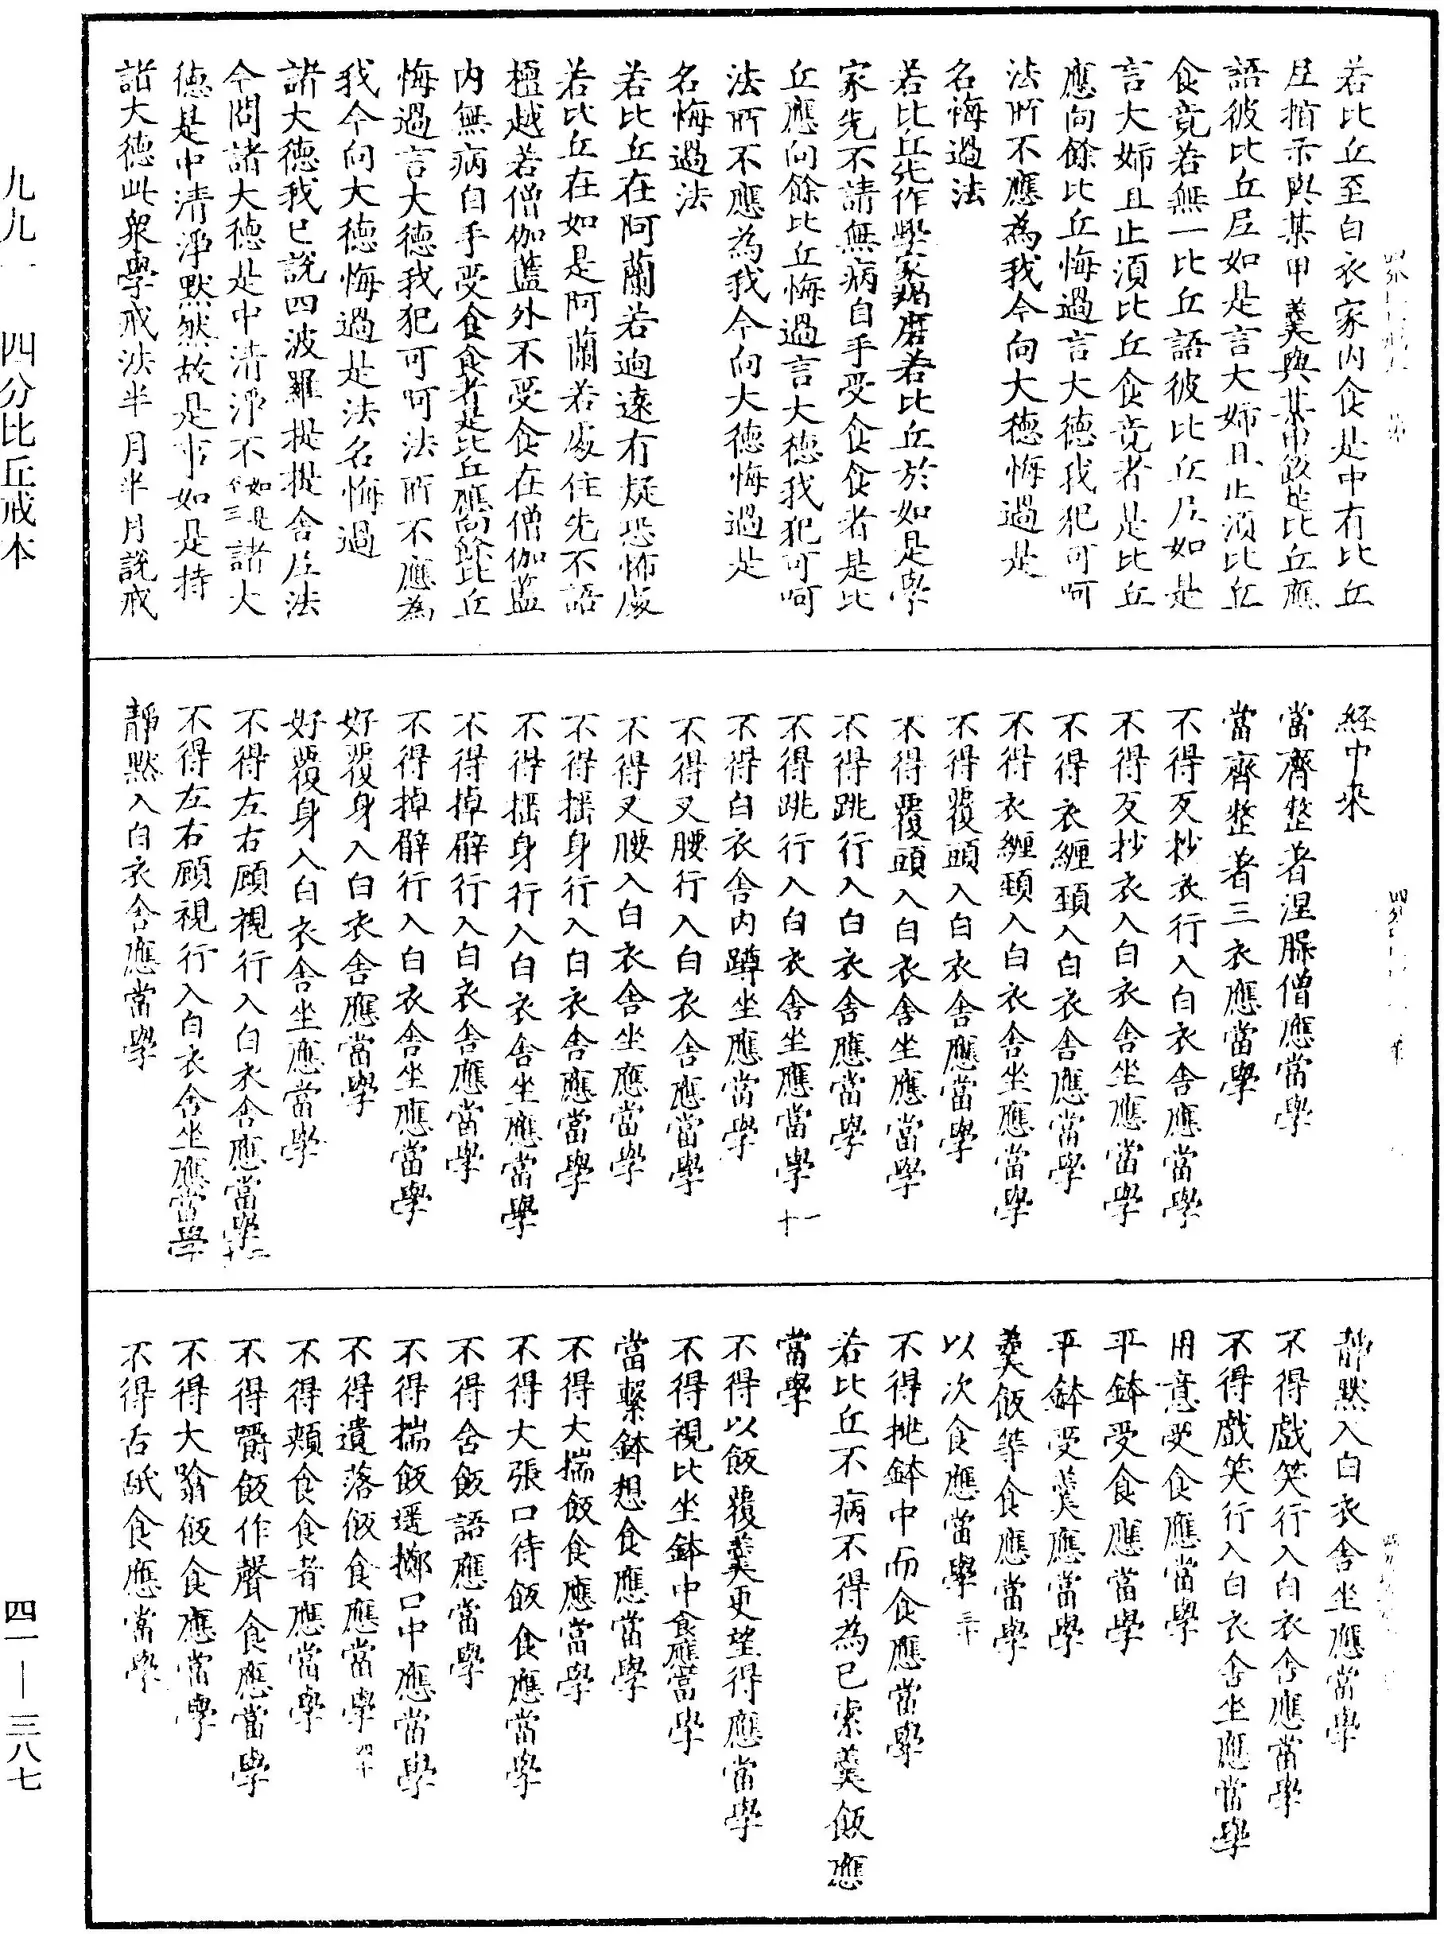 若比丘至白衣家内食是中有比丘
尼指示與某甲羹與某甲飯是比丘應
語彼比丘尼如是言大姊且止須比丘
食竟若無一比丘語彼比丘尼如是
言大姊且止須比丘食竟者是比丘
應向餘比丘悔過言大德我犯可呵
法所不應為我今向大德悔過是
名悔過法
若比丘先作學家羯磨若比丘於如是學
家先不請無病自手受食食者是比
丘應向餘比丘悔過言大德我犯可呵
法所不應為我今向大德悔過是
名悔過法
若比丘在阿蘭若逈遠有疑恐怖處
若比丘在如是阿蘭若處住先不語
檀越若僧伽藍外不受食在僧伽藍
内無病自手受食食者是比丘應向餘比丘
悔過言大德我犯可呵法所不應為
我今向大德悔過是法名悔過
諸大德我已說四波羅提提舍尼法
今問諸大德是中清淨不如是三諸大
德是中清淨默然故是事如是持
諸大德此衆學戒法半月半月說戒
經中来
當齊整著涅腂僧應當學
當齊整著三衣應當學
不得反抄衣行入白衣舍應當學
不得反抄衣入白衣舍坐應當學
不得衣纏頸入白衣舍應當學
不得衣纏頸入白衣舍坐應當學
不得覆頭入白衣舍應當學
不得覆頭入白衣舍坐應當學
不得跳行入白衣舍應當學
不得跳行入白衣舍坐應當學十一
不得白衣舍内蹲坐應當學
不得叉腰行入白衣舍應當學
不得叉腰入白衣舍坐應當學
不得揺身行入白衣舍應當學
不得揺身行入白衣舍坐應當學
不得掉臂行入白衣舍應當學
不得掉臂行入白衣舍坐應當學
好覆身入白衣舍應當學
好覆身入白衣舍坐應當學
不得左右顧視行入白衣舍應當學二十
不得左右顧視行入白衣舍坐應當學
靜默入白衣舍應當學
靜默入白衣舍坐應當學
不得戲笑行入白衣舍應當學
不得戲笑行入白衣舍坐應當學
用意受食應當學
平鉢受食應當學
平鉢受羹應當學
羹飯等食應當學
以次食應當學三十
不得挑鉢中而食應當學
若比丘不病不得為己索羹飯應
當學
不得以飯覆羹更望得應當學
不得視比坐鉢中食應當學
當繫鉢想食應當學
不得大揣飯食應當學
不得大張口待飯食應當學
不得含飯語應當學
不得揣飯遥擲口中應當學
不得遺落飯食應當學四十
不得頰食食者應當學
不得嚼飯作聲食應當學
不得大噏飯食應當學
不得舌舐食應當學
九九一 四分比丘戒本
四一—三八七